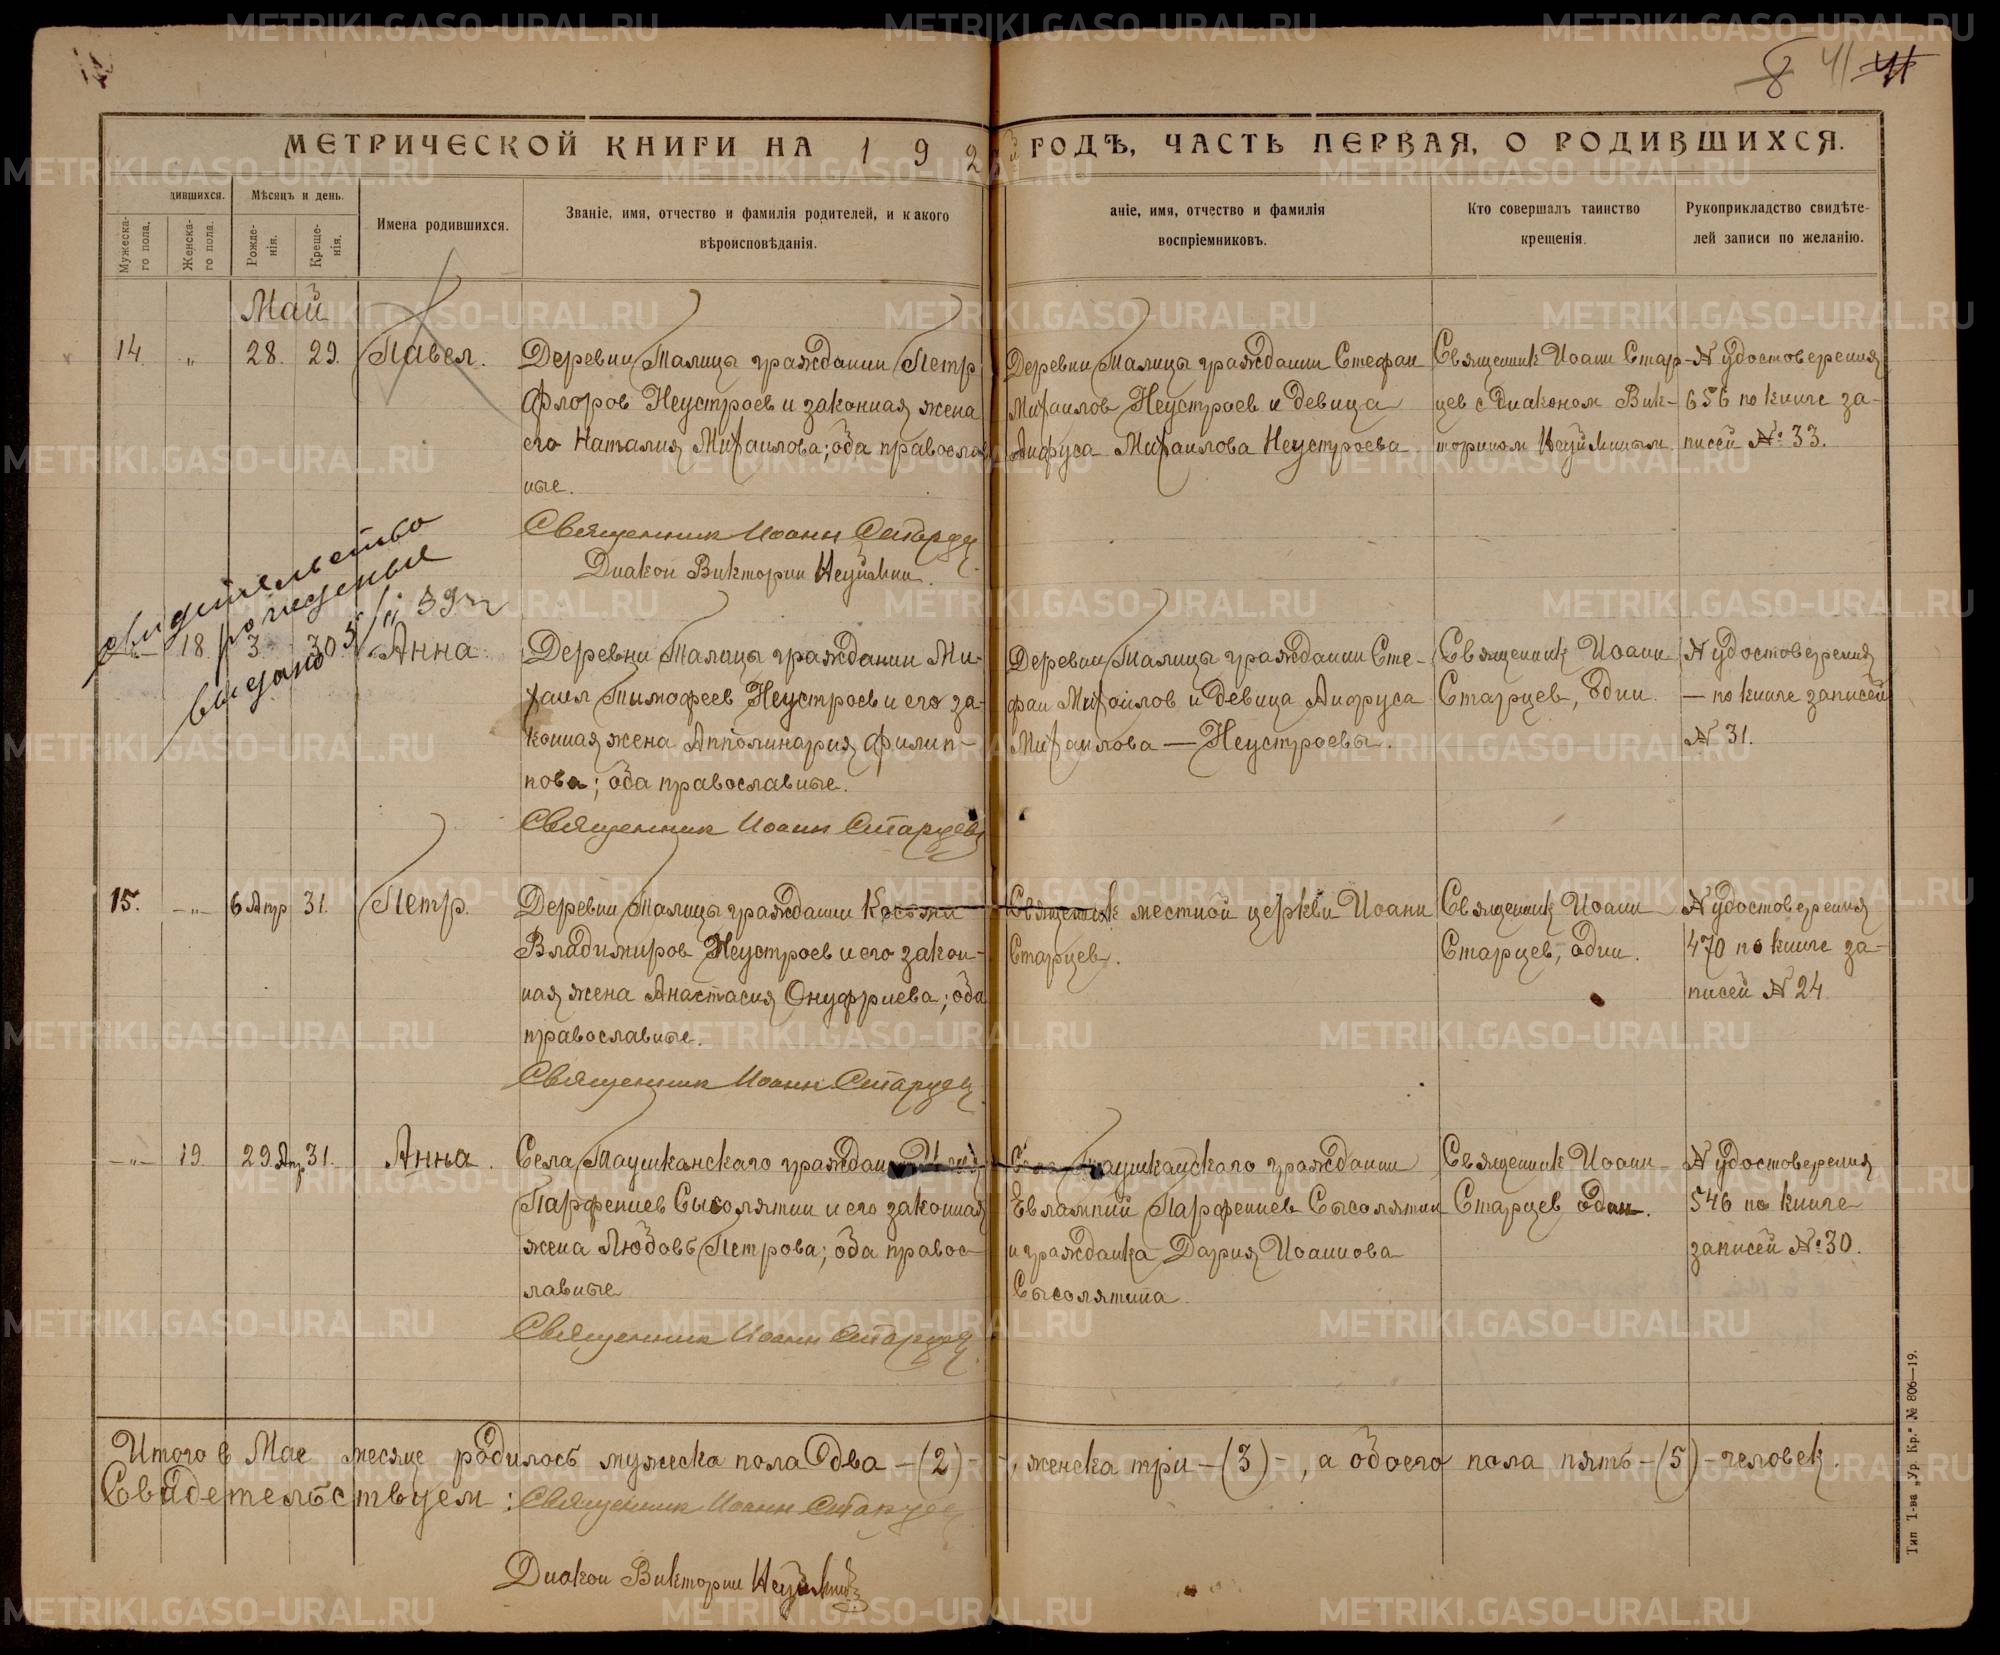 8 41 41
МЕТРИЧЕСКОЙ КНИГИ НА 192 ГОДЪ, ЧАСТЬ ПЕРВАЯ, О РОДИВШИХСЯ.
дившихся.
Мѣсяцъ и день.
Мужеска-
го пола.
Женска-
го пола.
Рожде-
нія.
Креще-
нія.
Имена родившихся.
Званіе, имя, отчество и фамилія родителей, и какого
вѣроисповѣданія.
аніе, имя, отчество и фамилія
воспріемниковъ.
Кто совершалъ таинство
крещенія.
Рукоприкладство свидѣте-
лей записи по желанію.
Май
14. " 28. 29. Павел.
Деревни Талицы гражданин Петр
Флоров Неустроев и законная жена
его Наталия Михаилова; оба православ
ные.
Священник Иоанн Старцев
Диакон Викторин Неуймин.
Деревни Талицы гражданин Стефан
Михаилов Неустроев и девица
Анфуса Михаилова Неустроева.
Священник Иоанн Стар-
цев с диаконом Вик-
торином Неуйминым.
№ удостоверения
656 по книге за-
писей № 33.
свидетельство
рождения
выдано
18. 3 30 Анна.
Деревни Талицы гражданин Ми-
хаил Тимофеев Неустроев и его за-
конная жена Апполинария Филип-
пова; оба православные.
Священник Иоанн Старцев
Деревни Талицы гражданин Сте-
фан Михаилов и девица Анфуса
Михаилова — Неустроевы.
Священник Иоанн
Старцев, один.
№ удостоверения
— по книге записей
№ 31.
15. -"- 6 Апр 31. Петр.
Деревни Талицы гражданин Косьми
Владимиров Неустроев и его закон-
ная жена Анастасия Онуфриева; оба
православные.
Священник Иоанн Старцев
Священник местной церкви Иоанн
Старцев.
Священник Иоанн
Старцев, один.
№ удостоверения
470 по книге за-
писей № 24
-"- 19. 29 Апр. 31. Анна.
Села Таушканскаго граждан
Парфениев Сысолятин и его законная
жена Любовь Петрова; оба правос-
лавные
Священник Иоанн Старцев
Села Таушканскаго гражданин
Евлампий Парфениев Сысолятин
и гражданка Дария Иоаннова
Сысолятина.
Священник Иоанн
Старцев один.
№ удостоверения
546 по книге
записей № 30.
Итого в Мае месяце родилось мужеска пола два - (2) - , женска три - (3) - , а обоего пола пять - (5) - человек.
Свидетельствуем: Священник Иоанн Старцев
Диакон Викторин Неуймин
Тип Т-ва „Ур. Кр." № 806—19.
METRIKI.GASO-URAL.RU